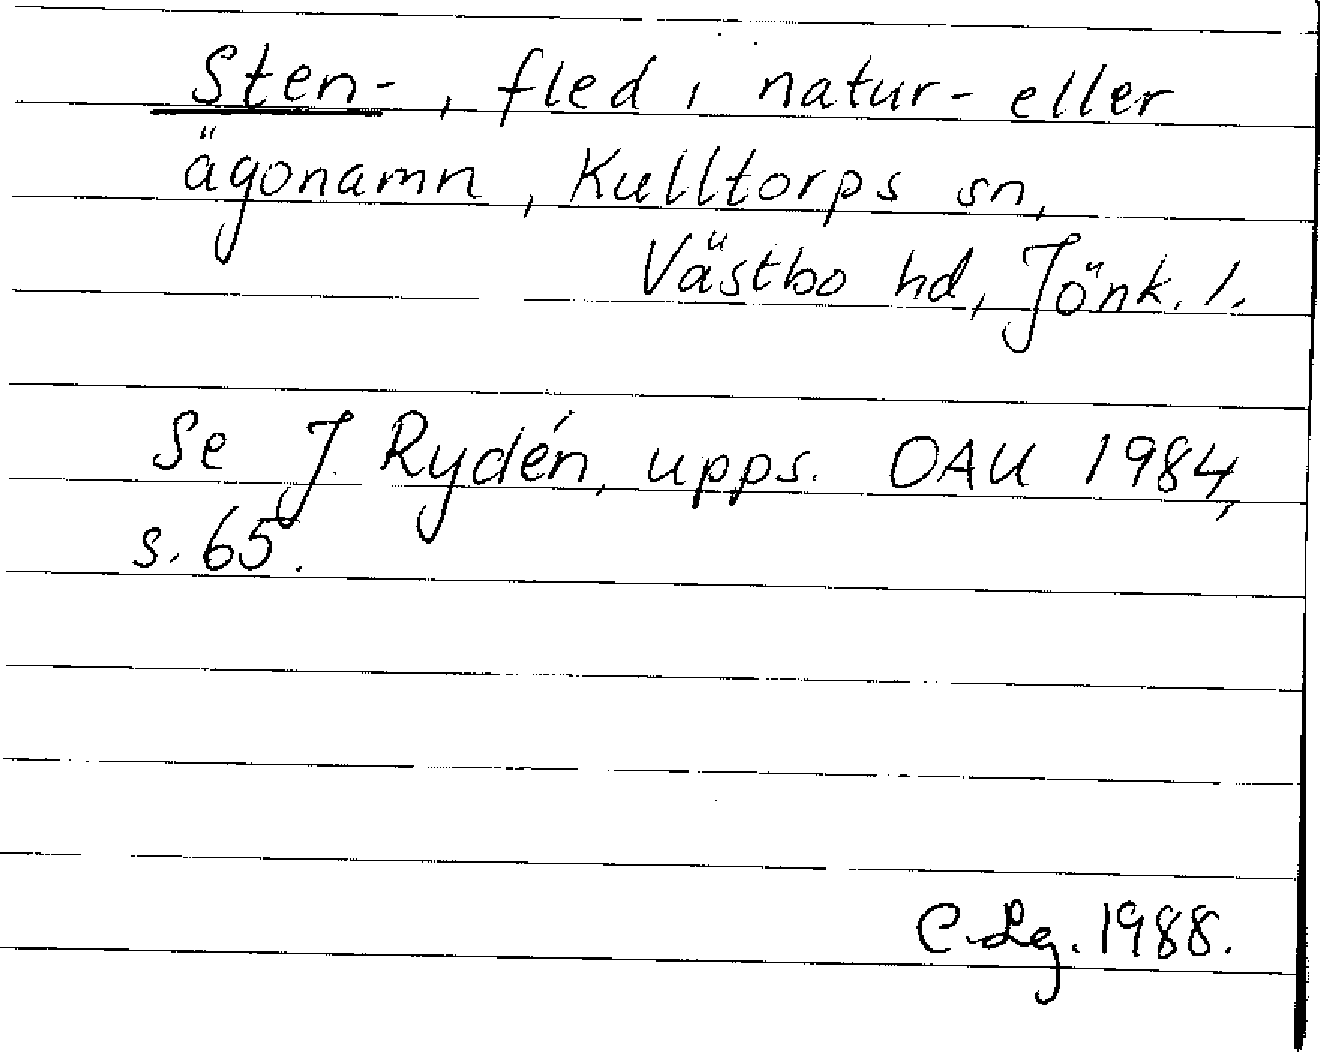 Sten-, fled i natur- eller
ägonamn, Kulltorps sn,
Västbo hd, Jönk. l.
Se J. Rydén, upps. OAU 1984,
s. 65.
C. Lg. 1988.